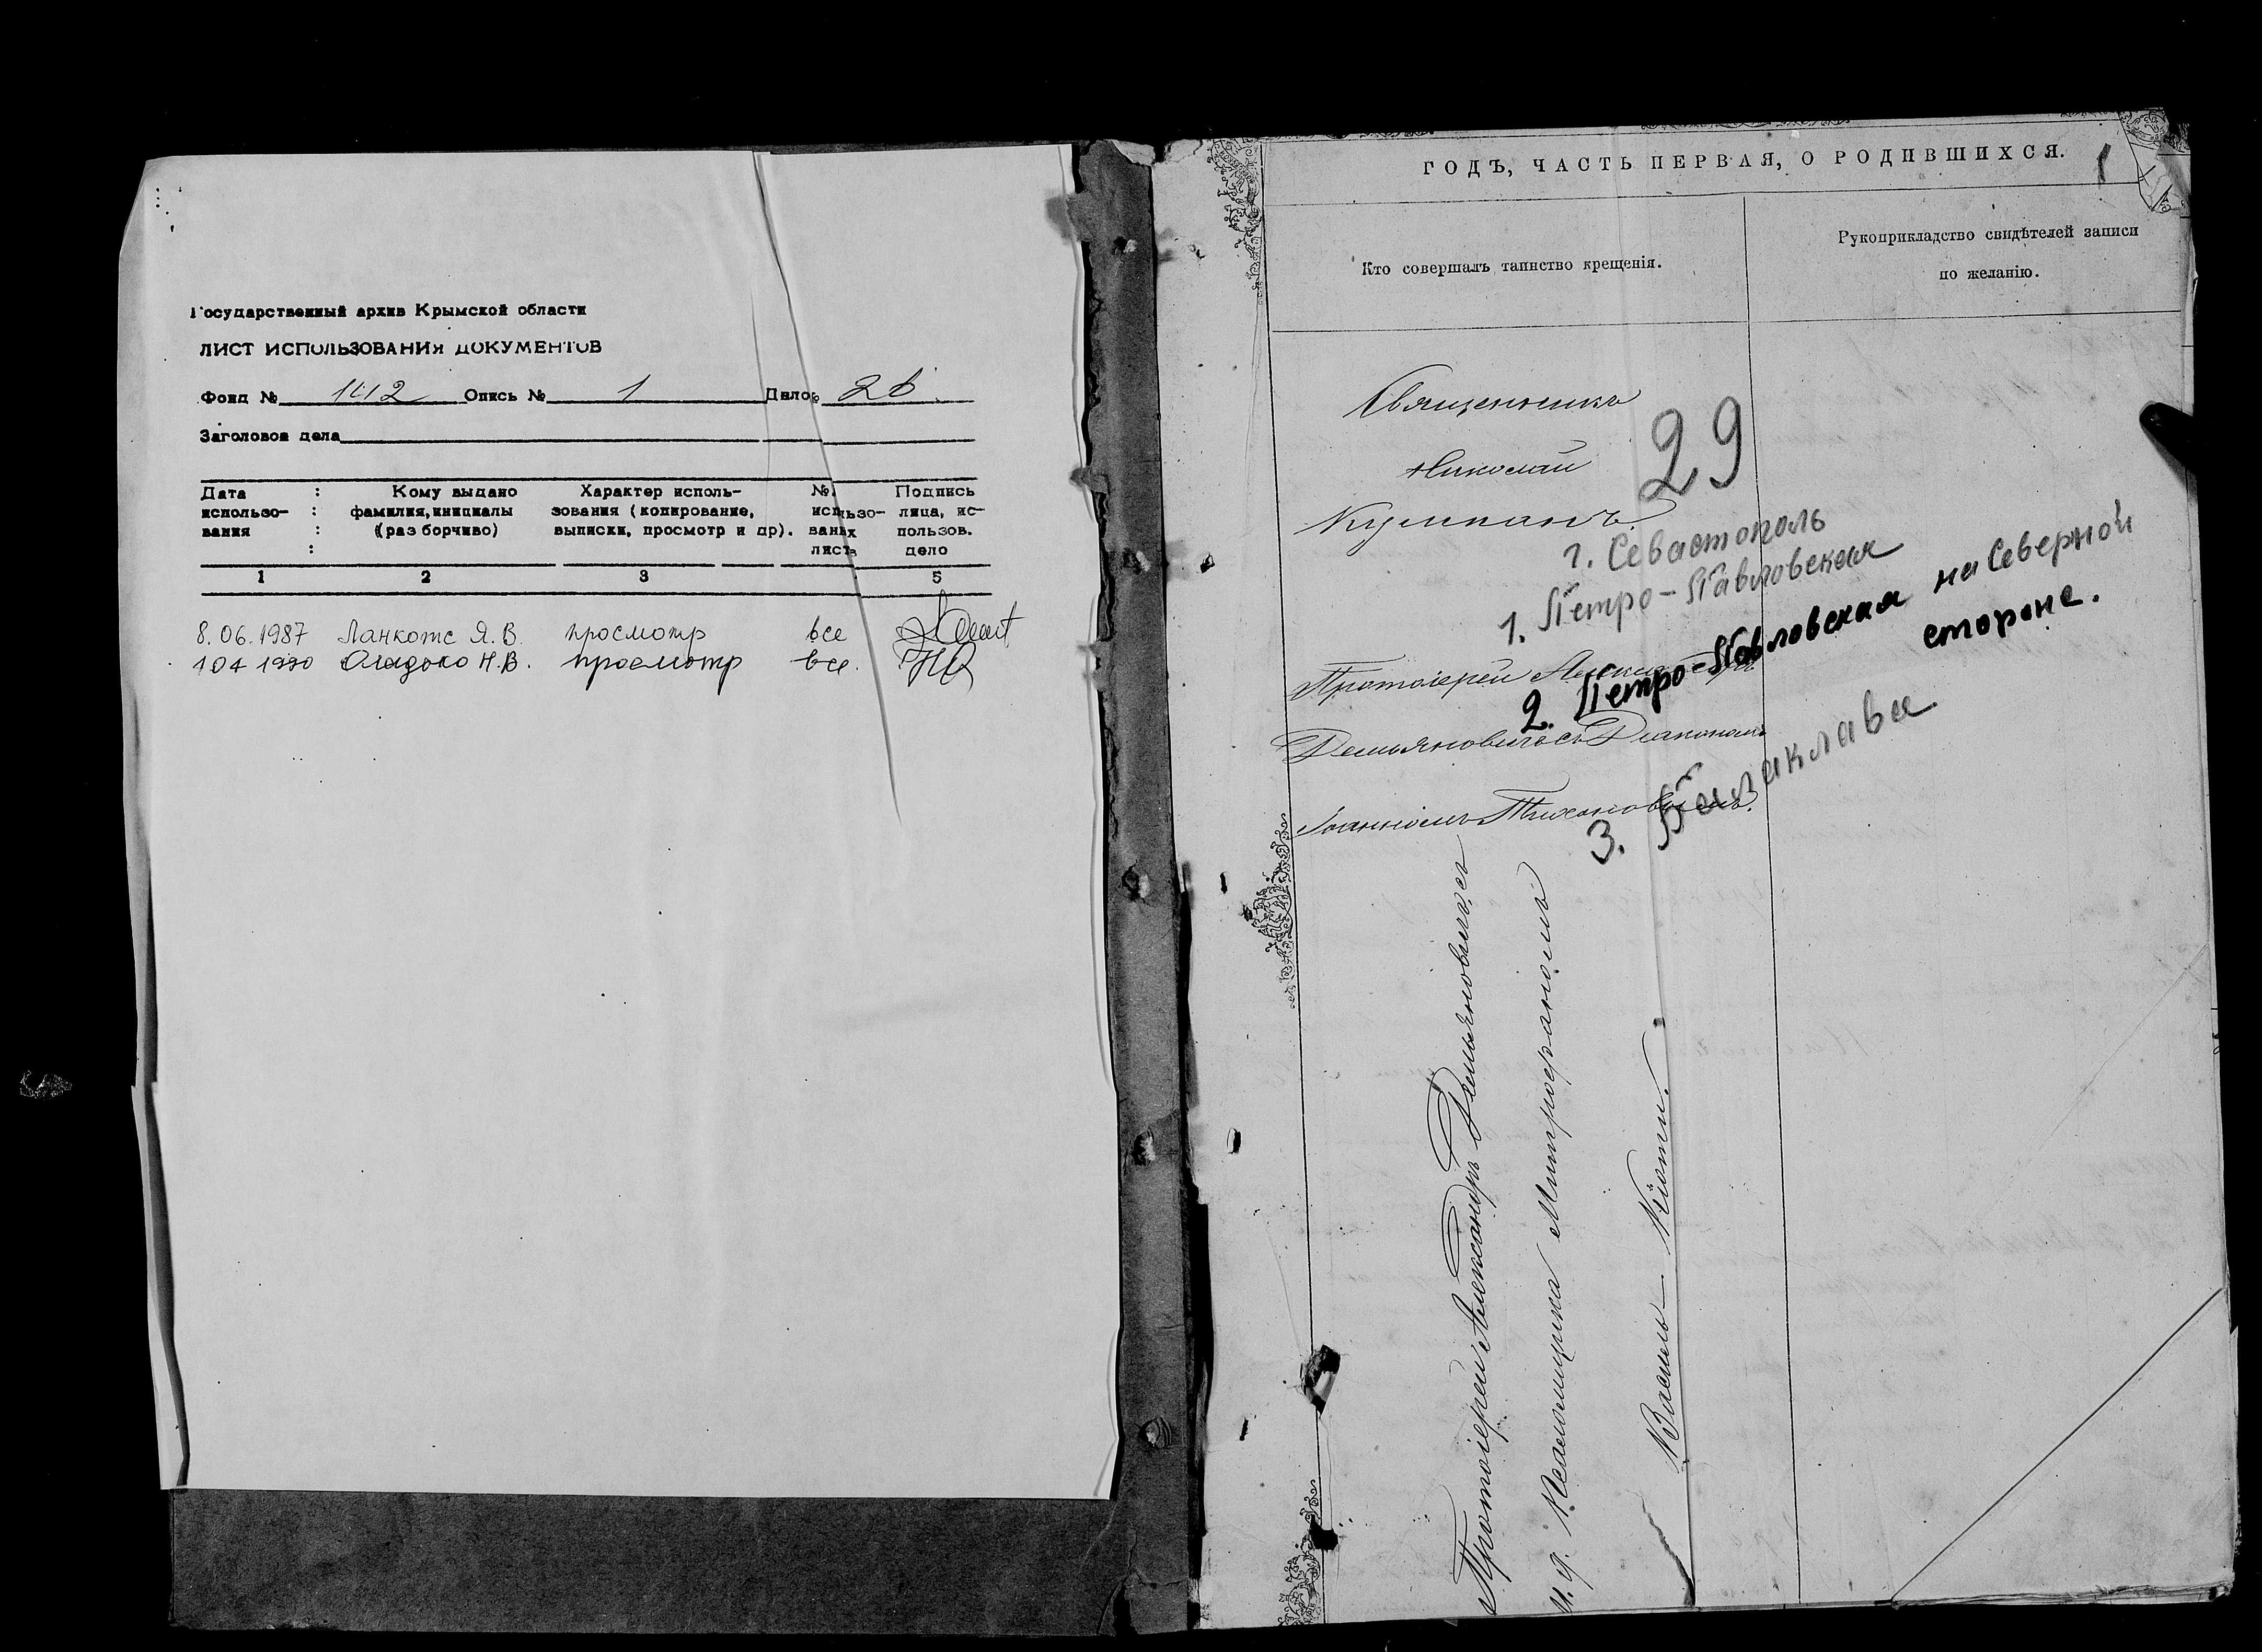 Государственный архив Крымской области
ЛИСТ ИСПОЛЬЗОВАНИЯ ДОКУМЕНТОВ
Фонд № 142 Опись № 1 Дело №
Заголовок дела
Дата использо-вания : Кому выдано фамилия, инициалы (разборчиво) Характер исполь-зования (копирование, выписки, просмотр и др). № использо-ваных листа Подпись лица, ис-пользов. дело
1 2 3 5
8.06.1987 Ланкотс Я.В. просмотр все
1 04 1990 Н.В. просмотр все.
ГОДЪ, ЧАСТЬ ПЕРВАЯ, О РОДИВШИХСЯ.
1
Кто совершалъ таинство крещенія.
Рукоприкладство свидѣтелей записи
по желанію.
Священникъ
Николай
29
г. Севастополь
1. Петро-Павловская
2. Петро-Павловская на Северной
стороне.
3. Балаклава
Протоіерей Александръ
Демьяновичъ съ Діакономъ
Іоанномъ Тихоновичемъ.
Протоіерей Александръ Демьяновичъ съ
и. д. Псаломщика Митрофаномъ
Василь-Кіоти.